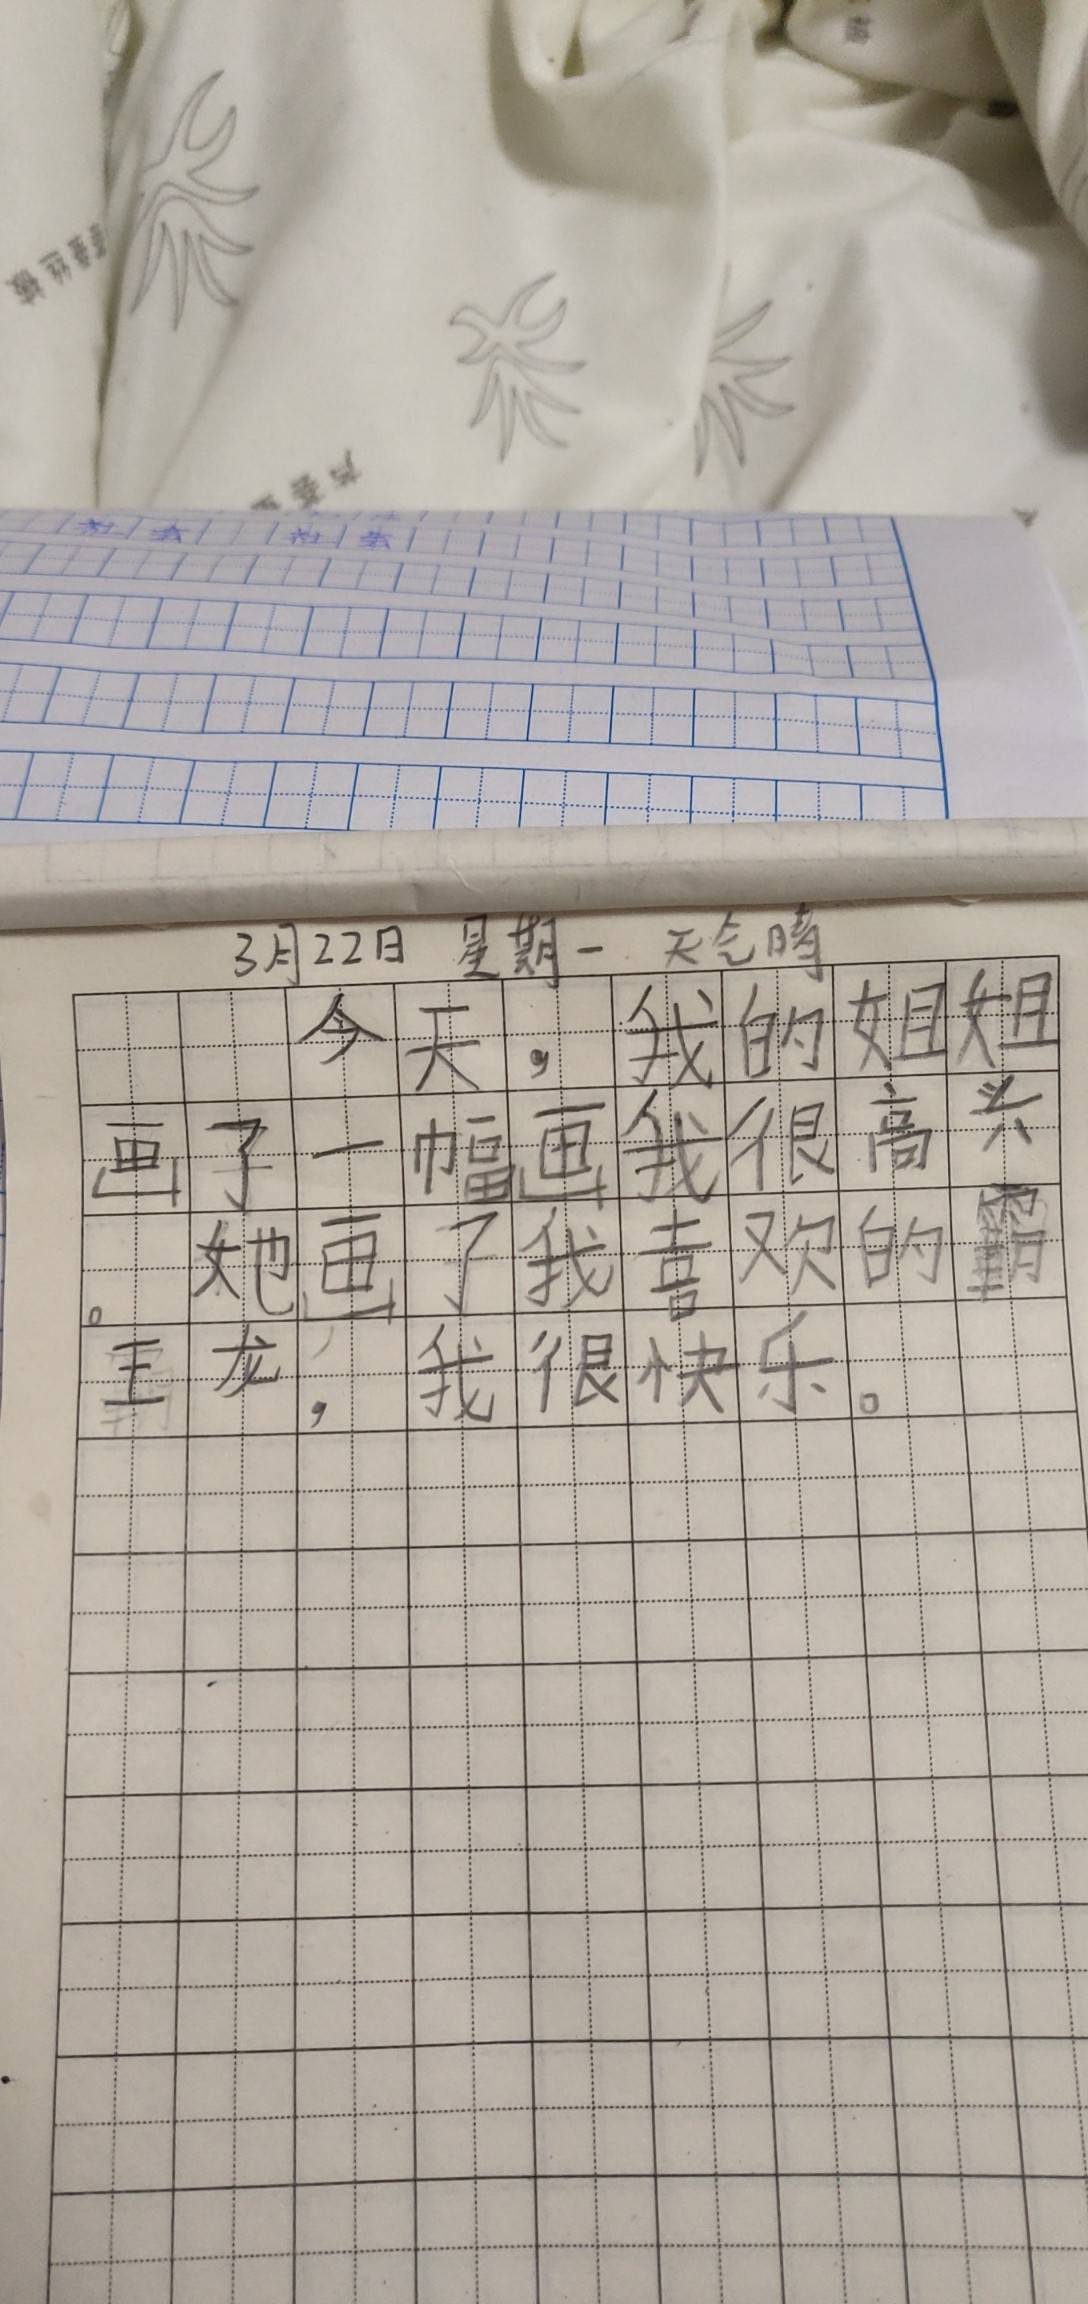 3月22日 星期一 天气晴
今天，我的姐姐
画了一幅画我很高兴
。她画了我喜欢的霸
王龙，我很快乐。